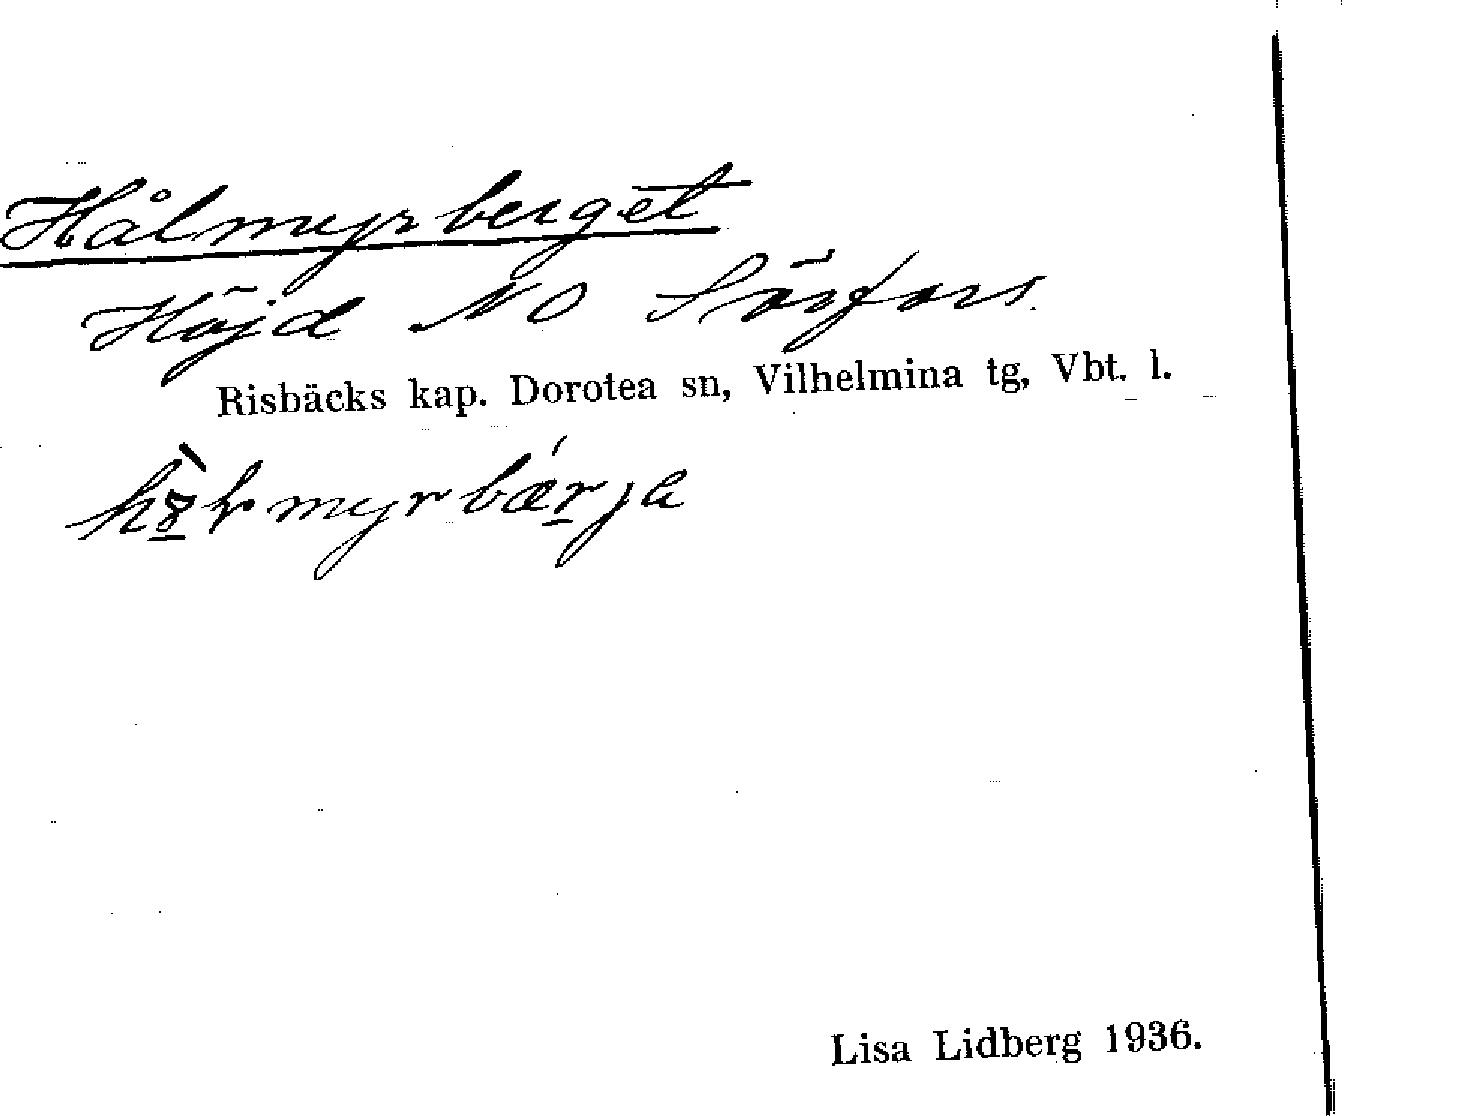 Hålmyrberget
Höjd NO Sörfors.
Risbäcks kap. Dorotea sn, Vilhelmina tg, Vbt. l.
Lisa Lidberg 1936.